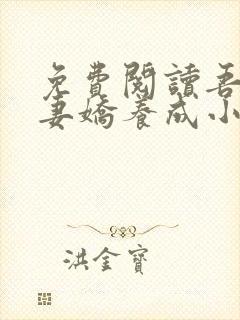 免費閱讀吾
妻嬌養成小
洪金寶